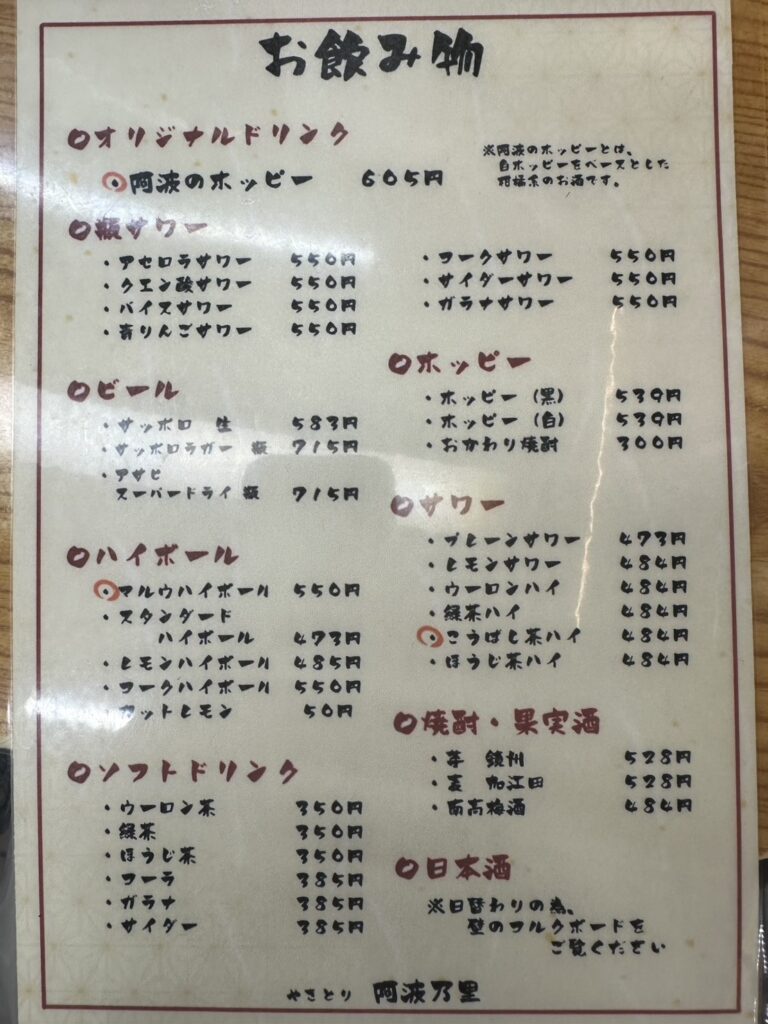 お飲み物
○オリジナルドリンク
・阿波のホッピー 605円
※阿波のホッピーとは、
白ホッピーをベースとした
柑橘系のお酒です。
○瓶サワー
・アセロラサワー 550円
・クエン酸サワー 550円
・バイスサワー 550円
・青りんごサワー 550円
・コークサワー 550円
・サイダーサワー 550円
・ガラナサワー 550円
○ビール
・サッポロ 生 583円
・サッポロラガー 瓶 715円
・アサヒ
スーパードライ 瓶 715円
○ホッピー
・ホッピー（黒） 539円
・ホッピー（白） 539円
・おかわり焼酎 300円
○ハイボール
・マルウハイボール 550円
・スタンダード
ハイボール 473円
・レモンハイボール 485円
・コークハイボール 550円
・カットレモン 50円
○サワー
・プレーンサワー 473円
・レモンサワー 484円
・ウーロンハイ 484円
・緑茶ハイ 484円
・こうばし茶ハイ 484円
・ほうじ茶ハイ 484円
○ソフトドリンク
・ウーロン茶 350円
・緑茶 350円
・ほうじ茶 350円
・コーラ 385円
・ガラナ 385円
・サイダー 385円
○焼酎・果実酒
・芋 鏡州 528円
・麦 加江田 528円
・南高梅酒 484円
○日本酒
※日替わりの為、
壁のコルクボードを
ご覧ください
やきとり 阿波乃里